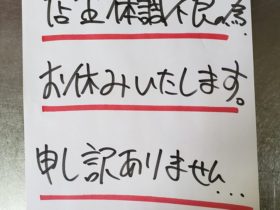 店主体識不良の為.
お休みいたします。
申し訳ありません...